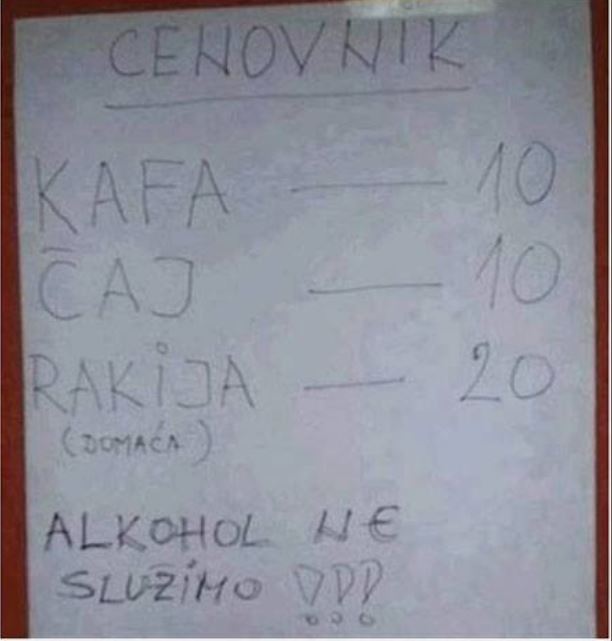 CENOVNIK
KAFA — 10
ČAJ — 10
RAKiJA — 20
(DOMAĆA)
ALKOHOL NE
SLUŽiMO !!!